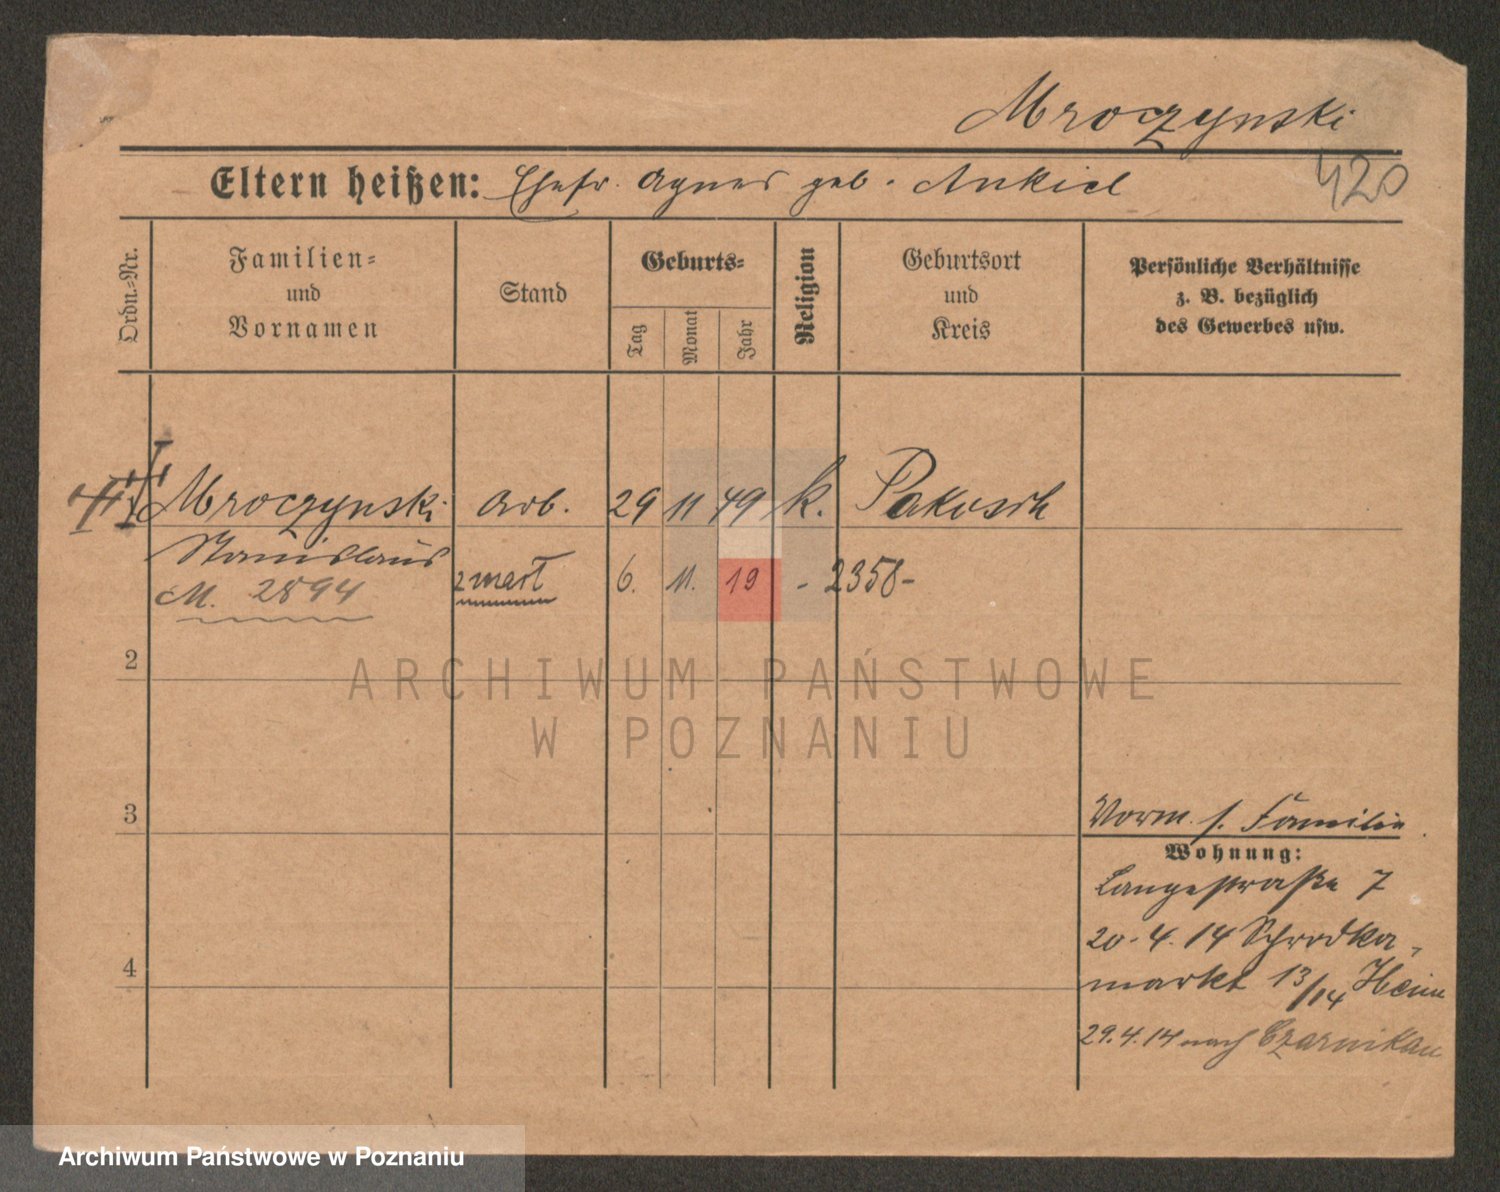 Mroczynski
420
Eltern heißen: Ehefr. Agnes geb. Ankiel
Ordn.-Nr.
Familien-
und
Vornamen
Stand
Geburts-
Tag
Monat
Jahr
Religion
Geburtsort
und
Kreis
Persönliche Verhältnisse
z. B. bezüglich
des Gewerbes usw.
Mroczynski Arb. 29 11 49 k. Pakosch
Stanislaus
M. 2894
6. 11. 19 - 2358-
2
ARCHIWUM PAŃSTWOWE
W POZNANIU
3
Vorm. s. Familie
Wohnung:
Langestraße 7
20.4.14 Schrodka-
markt 13/14 Heim
4
29.4.14 nach Czarnikau
Archiwum Państwowe w Poznaniu